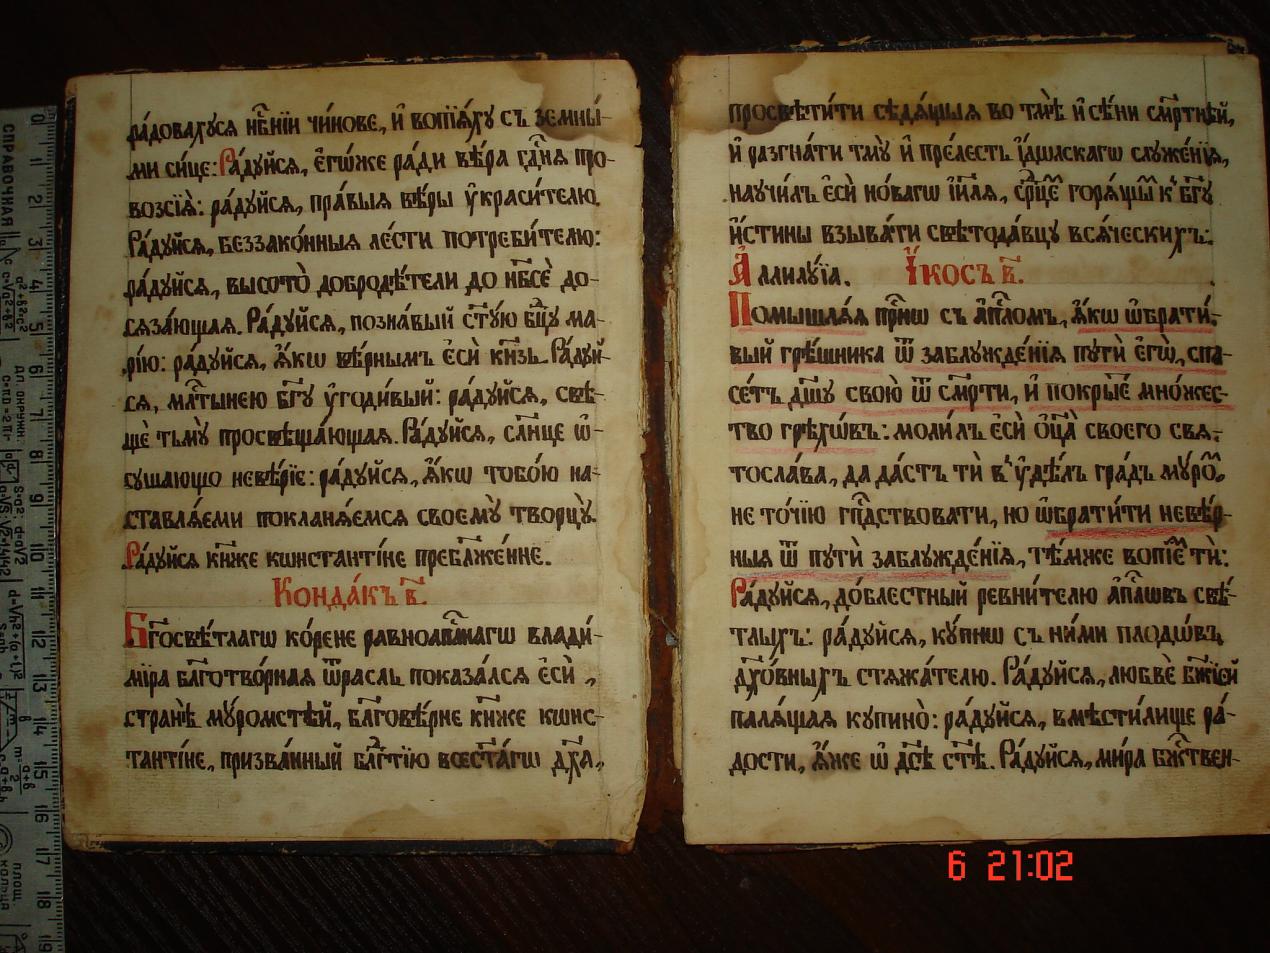 ра́довахуся нб҃нїи чи́нове, и҆ вопїѧ́ху съ земны́-
ми си́це: Ра́дуйся, є҆гѡ́же ра́ди вѣ́ра гдⷭ҇ня про-
возсїѧ̀: ра́дуйся, пра́выя вѣ́ры ᲂу҆краси́телю.
Ра́дуйся, беззако́нныя ле́сти потреби́телю:
ра́дуйся, высото̀ добродѣ́тели до нб҃сѐ до-
сяза́ющая. Ра́дуйся, позна́вый ст҃у́ю бц҃у ма-
рі́ю: ра́дуйся, ꙗ҆́кѡ вѣ́рнымъ є҆сѝ кн҃зь. Ра́дуй-
ся, млⷭ҇тынею бг҃у ᲂу҆годи́вый: ра́дуйся, свѣ-
щѐ тьмꙋ̀ просвѣща́ющая. Ра́дуйся, сл҃нце ѡ-
сушающо невѣ́рїе: ра́дуйся, ꙗ҆́кѡ тобо́ю на-
ставлѧ́еми покланѧ́емся своемꙋ̀ творцꙋ̀.
Ра́дуйся кн҃же кѡнстанті́не пребл҃же́нне.
Конда́къ в҃.
Бг҃освѣ́тлагѡ ко́рене равноапⷭ҇лнагѡ влади́-
мі́ра бл҃готво́рная ѿрасль показа́лся є҆сѝ,
странѣ̀ мꙋ́ромстѣй, бл҃говѣ́рне кн҃же кѡнс-
танті́не, призва́нный блгⷣтїю всест҃а́гѡ дх҃а,
просвѣти́ти сѣдѧ́щыя во тмѣ̀ и҆ сѣ́ни сме́ртнѣй,
и҆ разгна́ти тмꙋ̀ и҆ пре́лесть і҆́дѡлскагѡ служе́нїя,
научи́лъ є҆сѝ но́вагѡ і҆и҃ля, срⷣце горѧ́щымъ к̾ бг҃ꙋ
и҆́стины взыва́ти свѣтода́вцу всѧ́ческихъ:
Аллилꙋ́їа. І҆́косъ в҃.
Помышлѧ́я при́снѡ съ а҆пⷭ҇ломъ, ꙗ҆́кѡ ѡ҆брати́-
вый грѣ́шника ѿ заблужде́нїя пути̑ є҆гѡ̀, спа-
се́тъ дш҃у свою̀ ѿ сме́рти, и҆ покры́е мно́жес-
тво грѣхѡ́въ: моли́лъ є҆сѝ ѻ҆ц҃а̀ своего̀ свя-
тосла́ва, да да́стъ тѝ в̾ ᲂу҆дѣ́лъ гра́дъ мꙋ́ромъ,
не то́чїю гпⷭ҇дствовати, но ѡ҆брати́ти невѣ́р-
ныя ѿ путѝ заблужде́нїя, тѣ́мже вопїе́мъ тѝ:
Ра́дуйся, до́блестный ревни́телю а҆пⷭ҇лѡвъ свѣ́-
тлыхъ: ра́дуйся, ку́пнѡ съ ни́ми плодѡ́въ
дх҃о́вныхъ стяжа́телю. Ра́дуйся, любвѐ бж҃їей
палѧ́щая купино̀: ра́дуйся, вмѣсти́лище ра́-
дости, ꙗ҆́же ѡ҆ дс҃ѣ ст҃ѣ. Ра́дуйся, ми́ра бжⷭ҇твен-
6 21:02
СПРАВОЧНАЯ
0
1
2
3
4
5
6
7
8
9
10
11
12
13
14
15
16
17
18
19